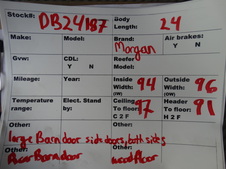 Stock#: DB24187 Body Length: 24
Make: Model: Brand: Morgan Air brakes: Y N
Gvw: CDL: Y N Reefer Model:
Mileage: Year: Inside Width: (IW) 94 Outside Width: (OW) 96
Temperature range: Elect. Stand by: Ceiling To floor: C 2 F 97 Header To floor: H 2 F 91
Other: Other:
large Barn door side doors, both sides
Other: Other:
Rear Barn door wood floor